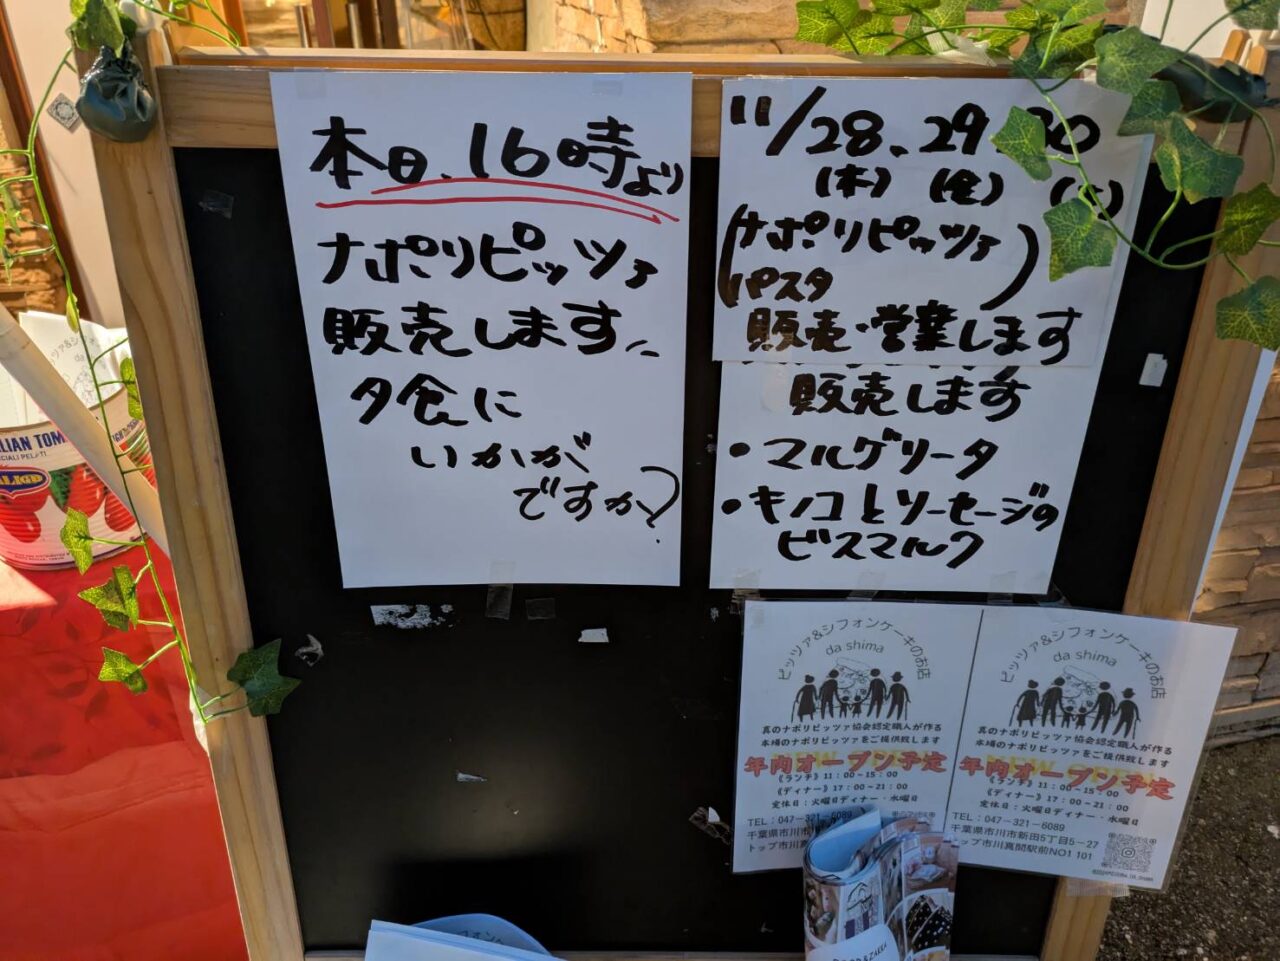 本日、16時より
ナポリピッツァ
販売します、
夕食に
いかが
ですか?
11/28、29、30
(木) (金)
(ナポリピッツァ
パスタ)
販売・営業します
販売します
・マルゲリータ
・キノコとソーセージの
ビスマルク
ピッツァ&シフォンケーキのお店
da shima
真のナポリピッツァ協会認定職人が作る
本場のナポリピッツァをご提供致します
年内オープン予定
《ランチ》11:00~15:00
《ディナー》17:00~21:00
定休日:火曜日ディナー・水曜日
TEL:047-321-6089
千葉県市川市
トップ市川真
ピッツァ&シフォンケーキのお店
da shima
真のナポリピッツァ協会認定職人が作る
本場のナポリピッツァをご提供致します
年内オープン予定
《ランチ》11:00~15:00
《ディナー》17:00~21:00
定休日:火曜日ディナー・水曜日
TEL:047-321-6089
千葉県市川市新田5丁目5-27
トップ市川真間駅前NO1 101
ALIAN TOM
ECIALI PELATI